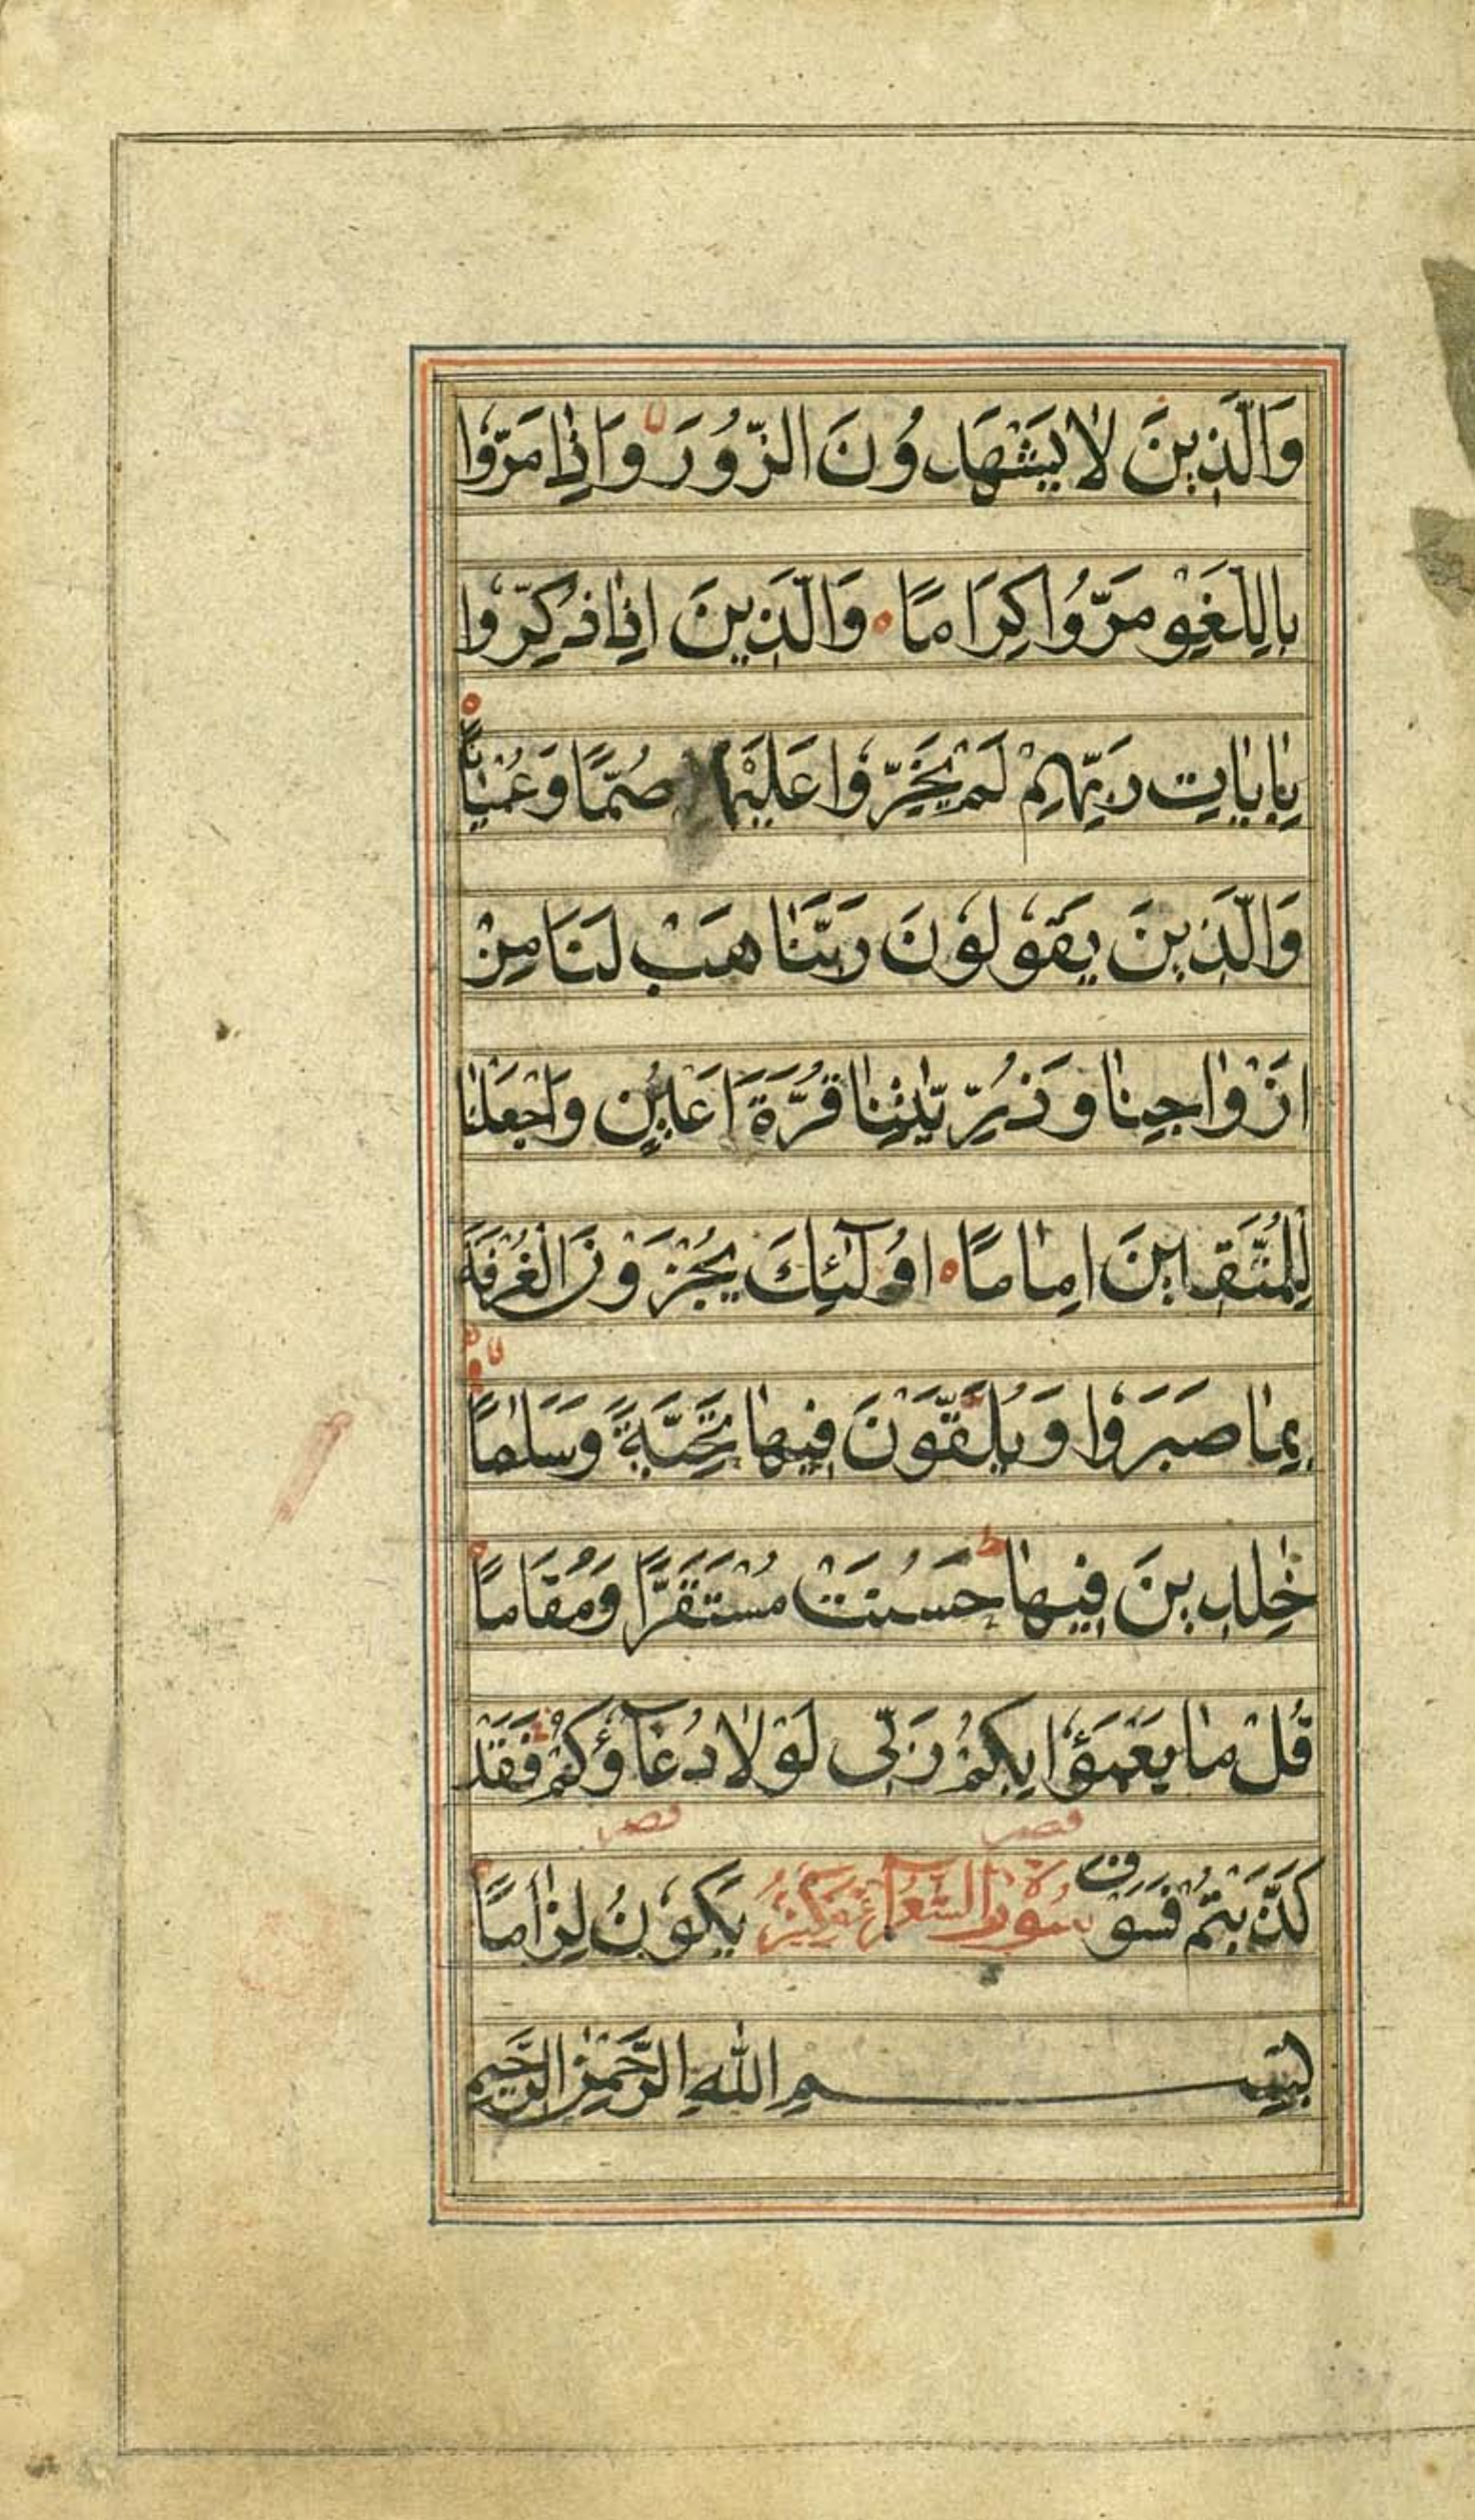 وَالَّذِينَ لَا يَشْهَدُونَ الزُّورَ وَاِذَا مَرُّوا
بِاللَّغْوِ مَرُّوا كِرَامًا وَالَّذِينَ اِذَا ذُكِّرُوا
بِاٰيَاتِ رَبِّهِمْ لَمْ يَخِرُّوا عَلَيْهَا صُمًّا وَعُمْيَانًا
وَالَّذِينَ يَقُولُونَ رَبَّنَا هَبْ لَنَا مِنْ
اَزْوَاجِنَا وَذُرِّيّٰتِنَا قُرَّةَ اَعْيُنٍ وَاجْعَلْنَا
لِلْمُتَّقِينَ اِمَامًا اُولٰٓئِكَ يُجْزَوْنَ الْغُرْفَةَ
بِمَا صَبَرُوا وَيُلَقَّوْنَ فِيهَا تَحِيَّةً وَسَلَامًا
خٰلِدِينَ فِيهَا ط حَسُنَتْ مُسْتَقَرًّا وَمُقَامًا
قُلْ مَا يَعْبَؤُا بِكُمْ رَبِّى لَوْلَا دُعَآؤُكُمْ فَقَدْ
كَذَّبْتُمْ فَسَوْفَ سورة الشعراء مكية يَكُونُ لِزَامًا
بِسْمِ اللّٰهِ الرَّحْمٰنِ الرَّحِيمِ